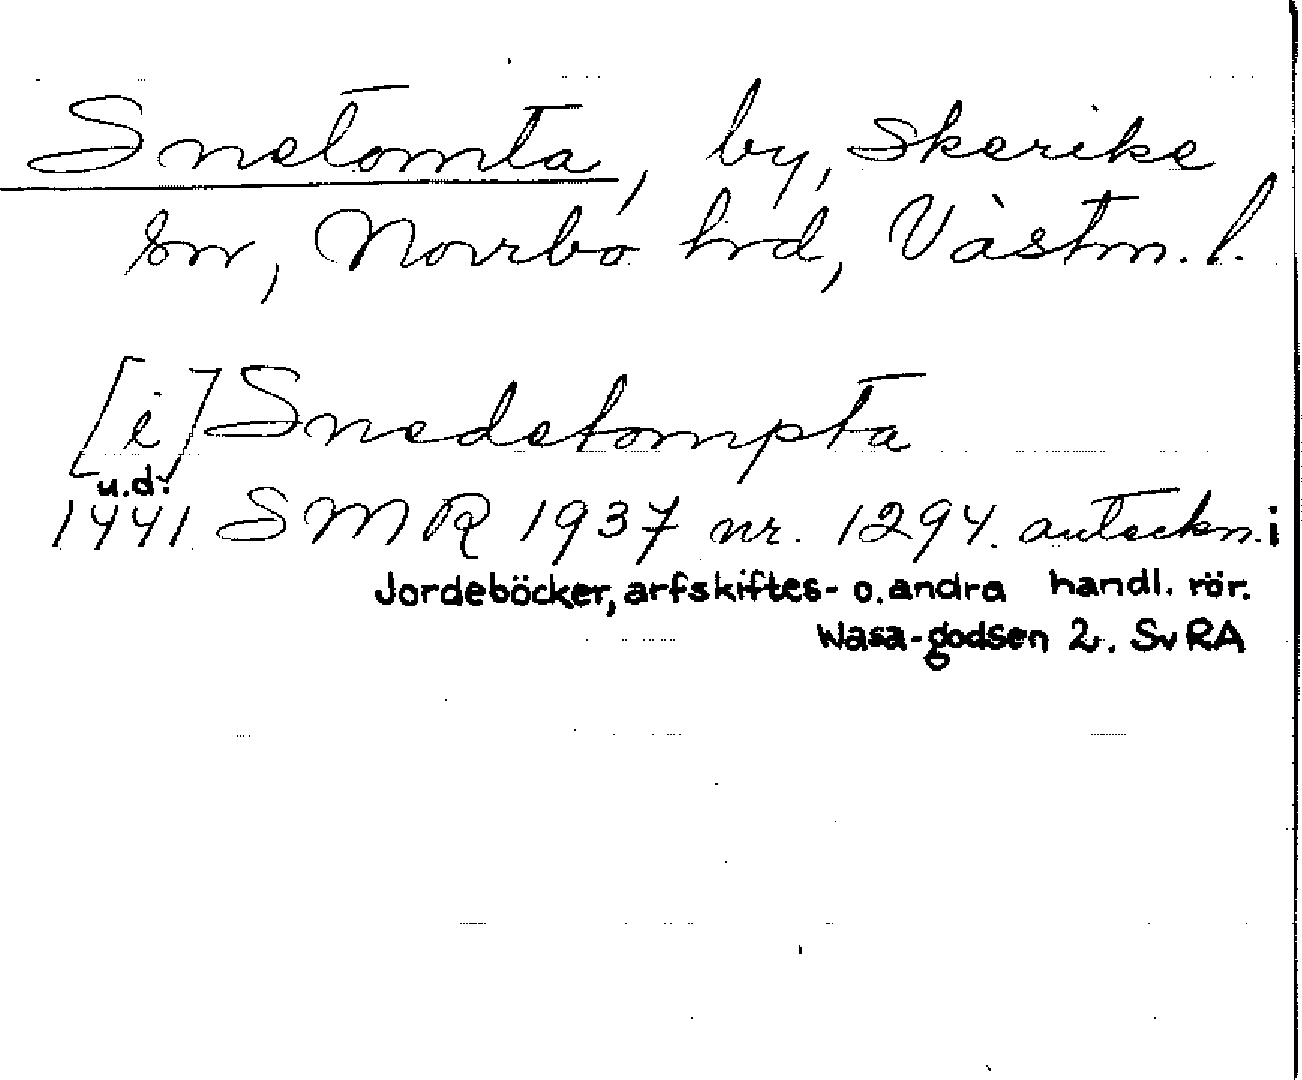 Snetomta, by, Skerike
sn, Norrbo hrd, Västm. l.
[i] Snedetompta
u.d.
1441 SMR 1937 nr. 1294. anteckn. i
Jordeböcker, arfskiftes- o. andra handl. rör.
Wasa-godsen 2. SvRA